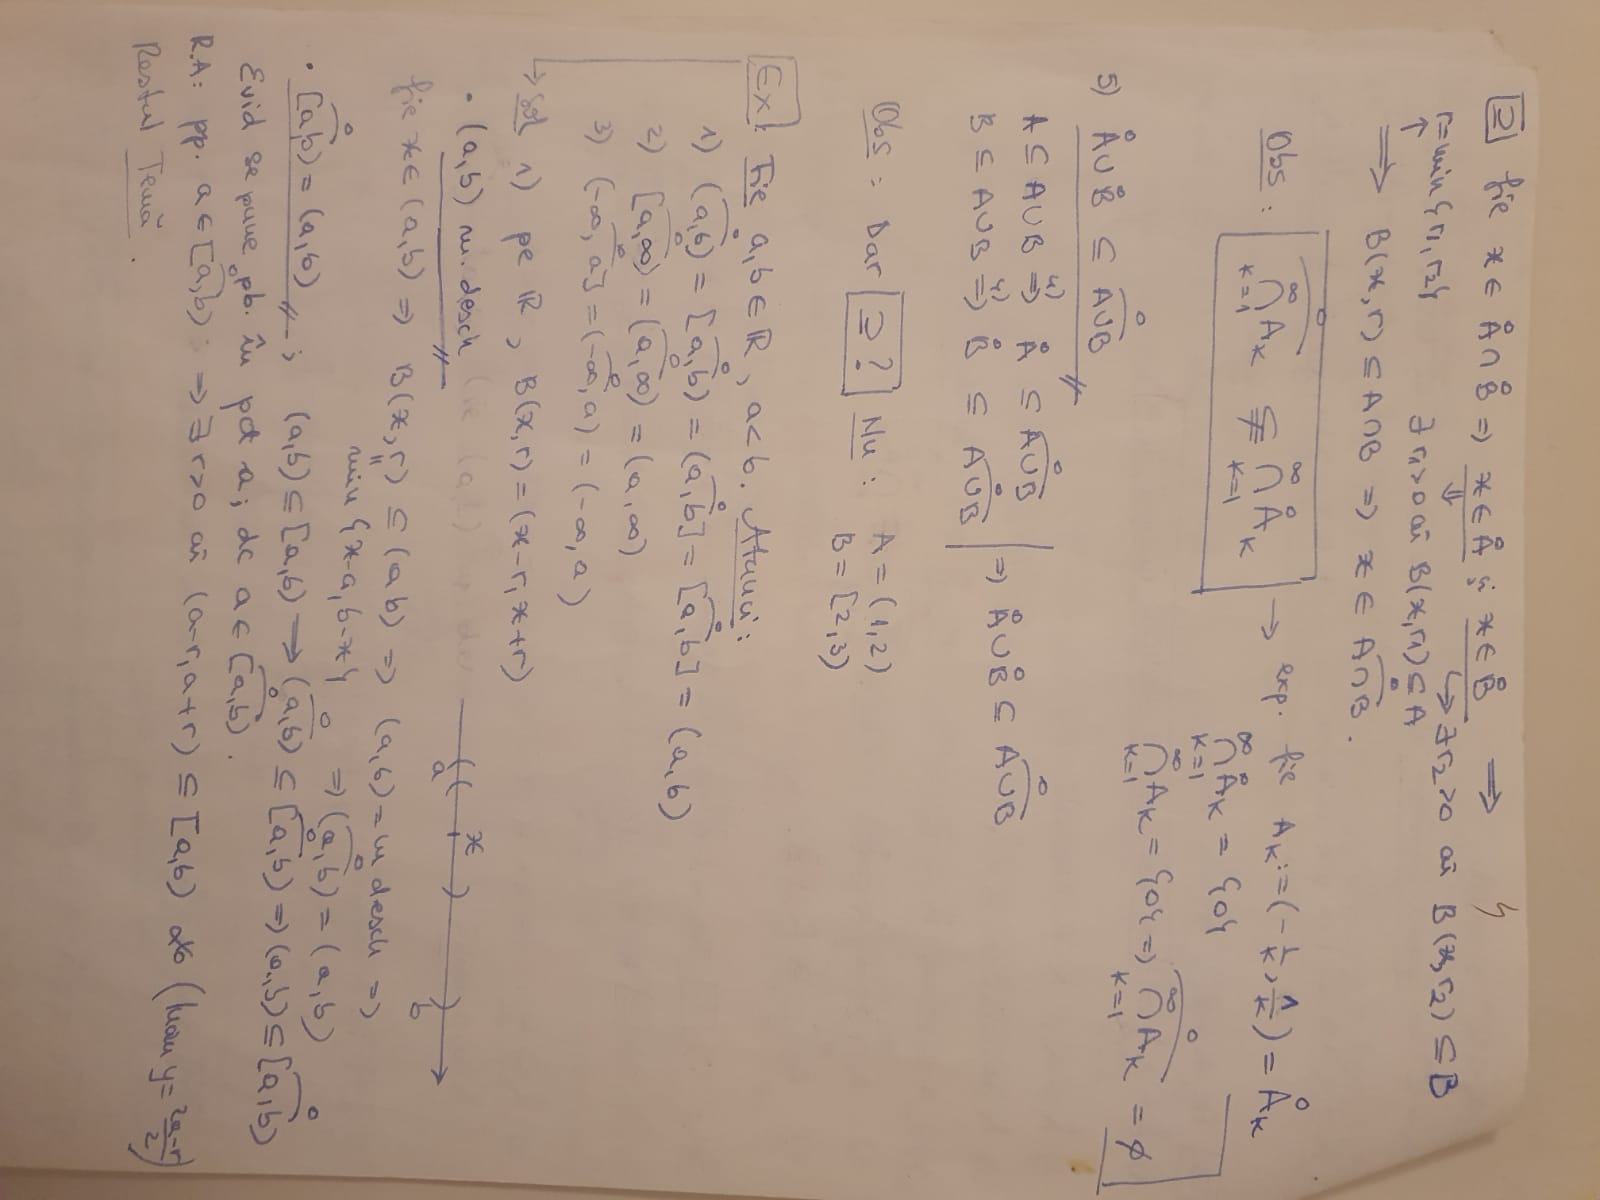 ⊇ fie x ∈ Å∩B̊ ⇒ x∈Å și x∈B̊ ⟹
⇓ ↳ ∃ r₂>0 aî B(x,r₂) ⊆ B
r=min{r₁,r₂} ∃ r₁>0 aî B(x,r₁) ⊆ A
⟹ B(x,r) ⊆ A∩B ⇒ x ∈ (A∩B)°.
Obs: (⋂_{k=1}^∞ A_k)° ⊊ ⋂_{k=1}^∞ Å_k → exp. fie A_k := (-1/k, 1/k) = Å_k
⋂_{k=1}^∞ Å_k = {0}
⋂_{k=1}^∞ A_k = {0} ⇒ (⋂_{k=1}^∞ A_k)° = ∅
5) Å∪B̊ ⊆ (A∪B)°
A ⊆ A∪B ⇒⁴⁾ Å ⊆ (A∪B)°
B ⊆ A∪B ⇒⁴⁾ B̊ ⊆ (A∪B)° | ⇒ Å∪B̊ ⊆ (A∪B)°
Obs: Dar ⊇ ? Nu: A = (1,2)
B = [2,3)
Ex! Fie a,b∈ℝ, a<b. Atunci:
1) (a,b)° = [a,b)° = (a,b]° = [a,b]° = (a,b)
2) [a,∞)° = (a,∞)° = (a,∞)
3) (-∞,a]° = (-∞,a)° = (-∞,a)
→ Sol 1) pe ℝ, B(x,r) = (x-r, x+r)
• (a,b) m. desch
a ( x ) b
fie x∈(a,b) ⇒ B(x,r) ⊆ (a,b) ⇒ (a,b) = m desch ⇒
min{x-a, b-x} ⇒ (a,b)° = (a,b)
• [a,b)° = (a,b); (a,b) ⊆ [a,b) → (a,b)° ⊆ [a,b)° ⇒ (a,b) ⊆ [a,b)°
Evid se pune pb. în pct a; dc a ∈ [a,b)°.
R.A: pp. a∈[a,b)°; ⇒ ∃ r>0 aî (a-r, a+r) ⊆ [a,b) ab (luăm y = (2a-r)/2)
Restul Temă.